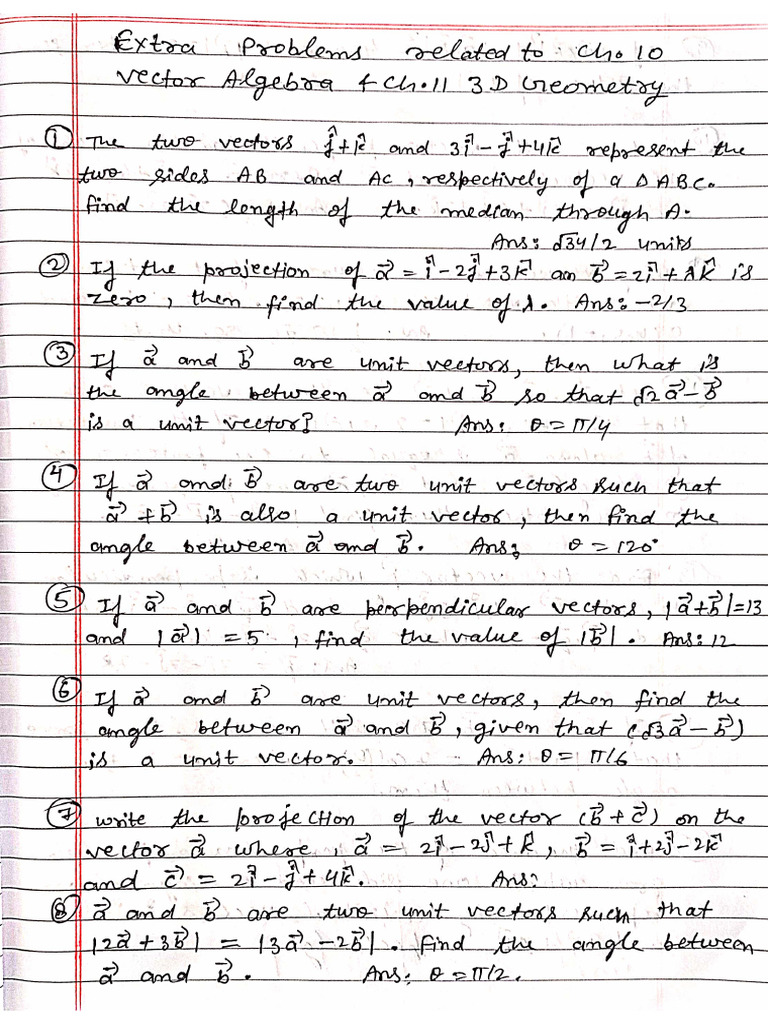 Extra Problems related to Ch.10
Vector Algebra & Ch.11 3D Geometry
① The two vectors ĵ+k̂ and 3î-ĵ+4k̂ represent the
two sides AB and AC, respectively of a ΔABC.
find the length of the median through A.
Ans: √34/2 units
② If the projection of a⃗ = î-2ĵ+3k̂ on b⃗ = 2î+λk̂ is
zero, then find the value of λ. Ans:-2/3
③ If a⃗ and b⃗ are unit vectors, then what is
the angle between a⃗ and b⃗ so that √2a⃗-b⃗
is a unit vector? Ans: θ=π/4
④ If a⃗ and b⃗ are two unit vectors such that
a⃗+b⃗ is also a unit vector, then find the
angle between a⃗ and b⃗. Ans: θ=120°
⑤ If a⃗ and b⃗ are perpendicular vectors, |a⃗+b⃗|=13
and |a⃗| = 5, find the value of |b⃗|. Ans: 12
⑥ If a⃗ and b⃗ are unit vectors, then find the
angle between a⃗ and b⃗, given that (√3a⃗-b⃗)
is a unit vector. Ans: θ= π/6
⑦ write the projection of the vector (b⃗+c⃗) on the
vector a⃗ where, a⃗ = 2î-2ĵ+k̂, b⃗ = î+2ĵ-2k̂
and c⃗ = 2î-ĵ+4k̂. Ans:
⑧ a⃗ and b⃗ are two unit vectors such that
|2a⃗+3b⃗| = |3a⃗-2b⃗|. Find the angle between
a⃗ and b⃗. Ans: θ=π/2.